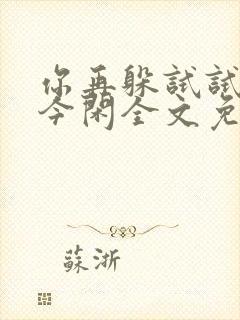 你再躲试试
今闲全文免
蘇浙